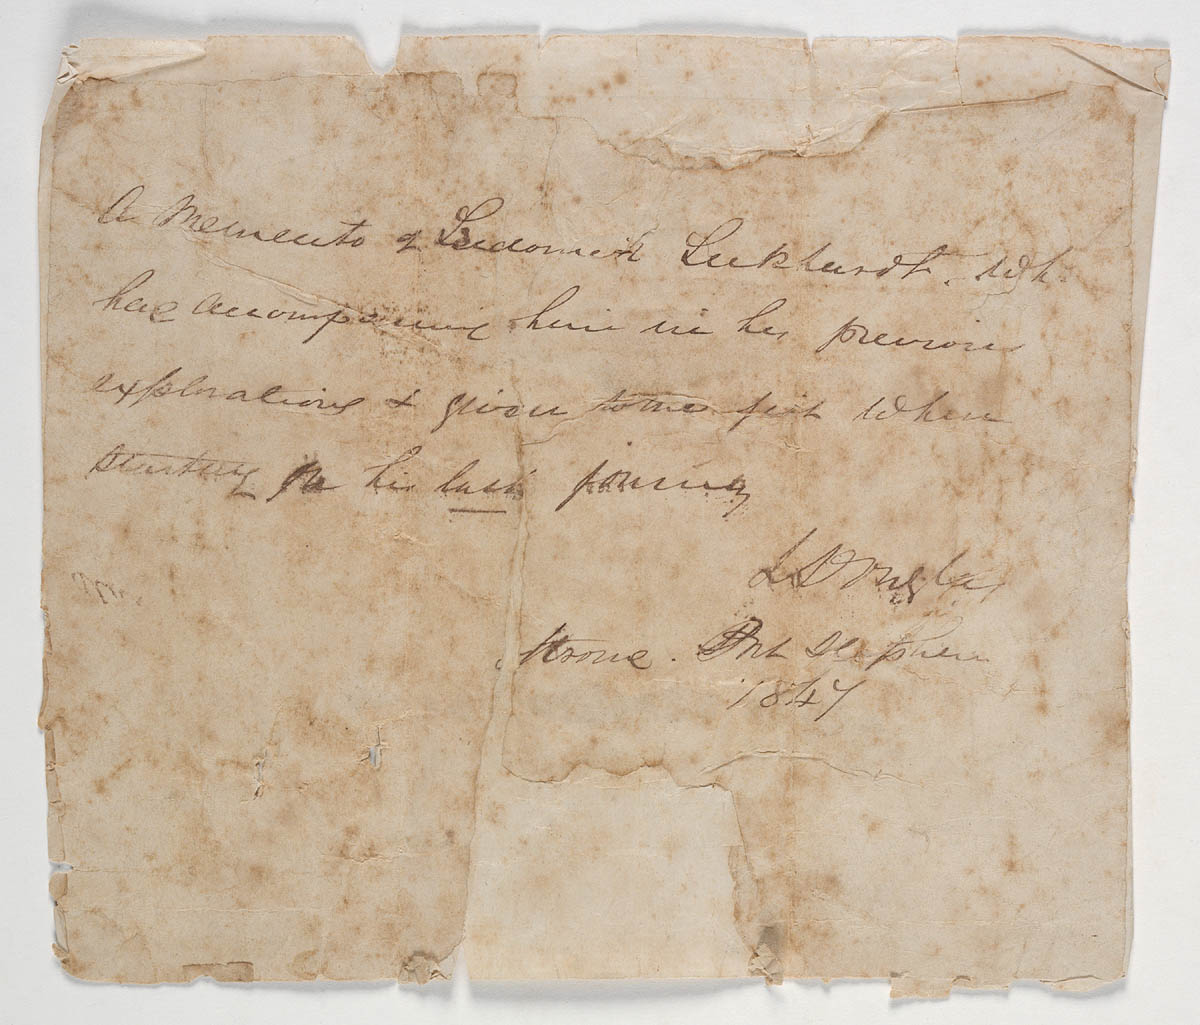 A Memento of Ludovick Leekhardt. Wh
has accompanied him in his previous
explorations & given to me just when
starting on his last journey
L Douglas
Strone. Port Stephens
1847